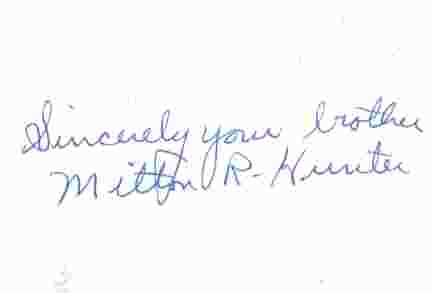 Sincerely your brother
Milton R. Hunter